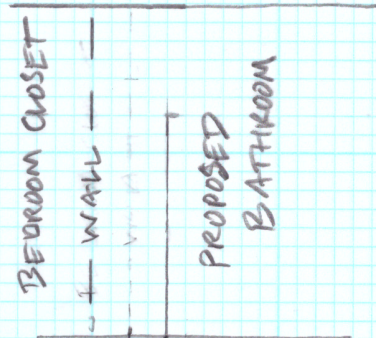 BEDROOM CLOSET
WALL
PROPOSED
BATHROOM